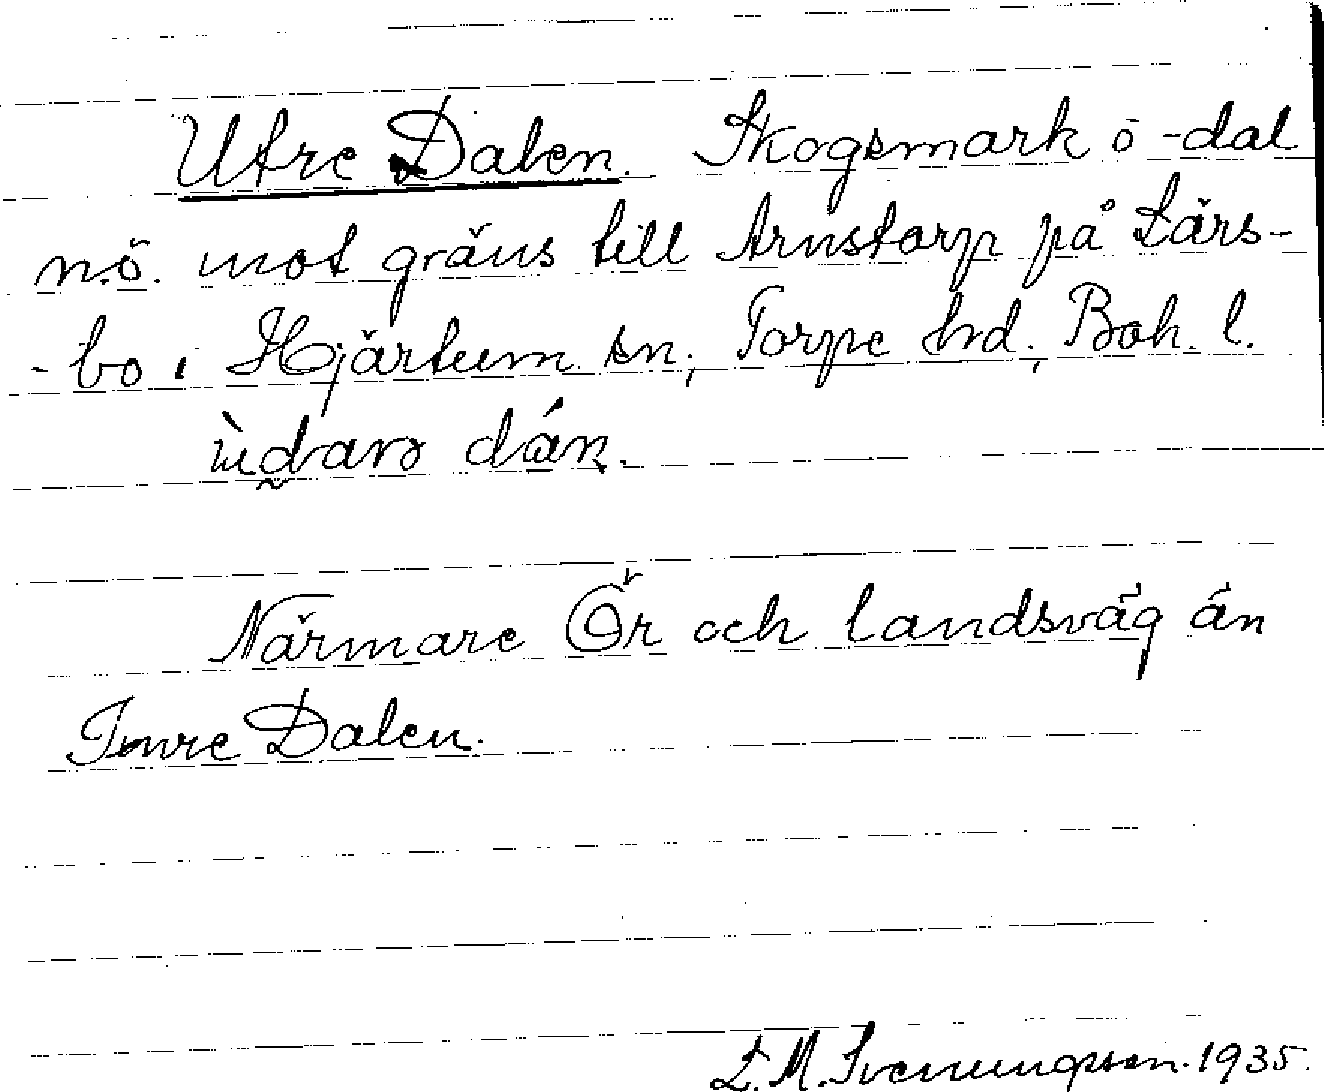 Utre Dalen. Skogsmark o -dal
n.ö. mot gräns till Arnstorp på Lärs-
-bo i Hjärtum sn, Torpe hd, Boh. l.
dán.
Närmare Ör och landsväg än
Inre Dalen.
E. M. Svenungsson. 1935.